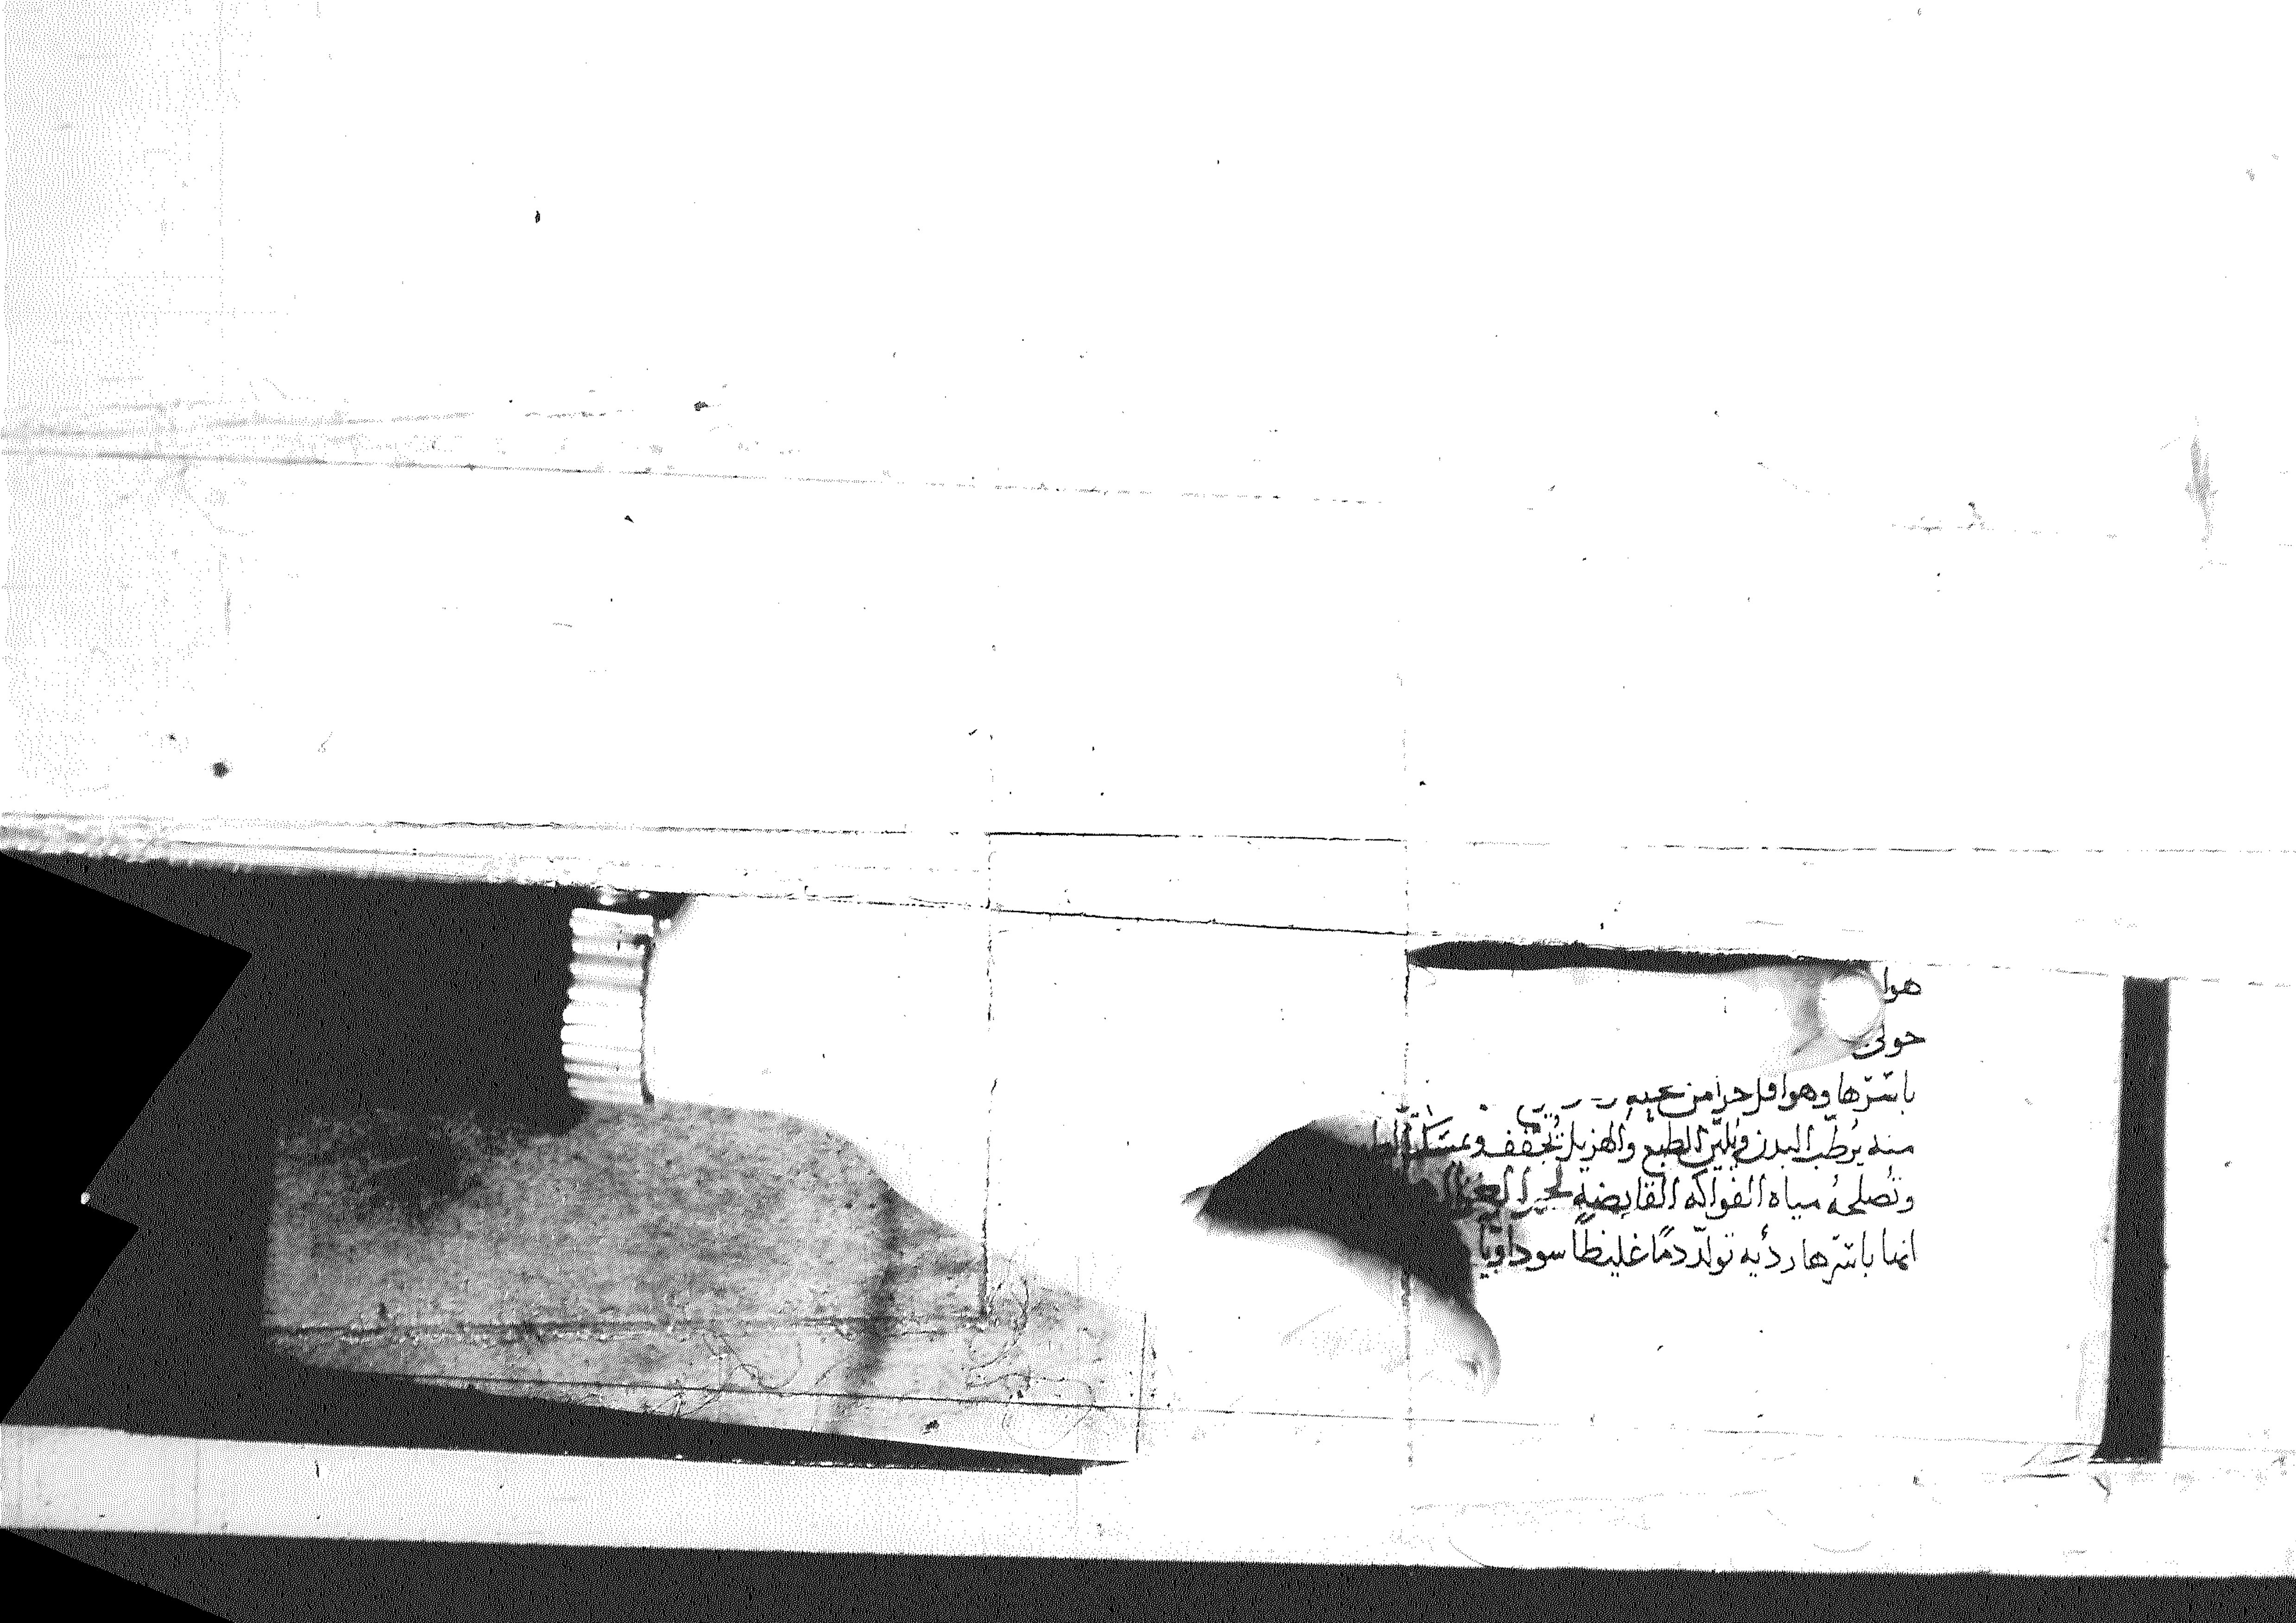 هوا
حولى
باسرها وهو اقل حرا من غيره
منه يرطب البدن ويلين الطبع والهزيل يجفف
وتصلحه مياه الفواكه القابضه لحم
انها باسرها رديه تولد دما غليظا سوداويا